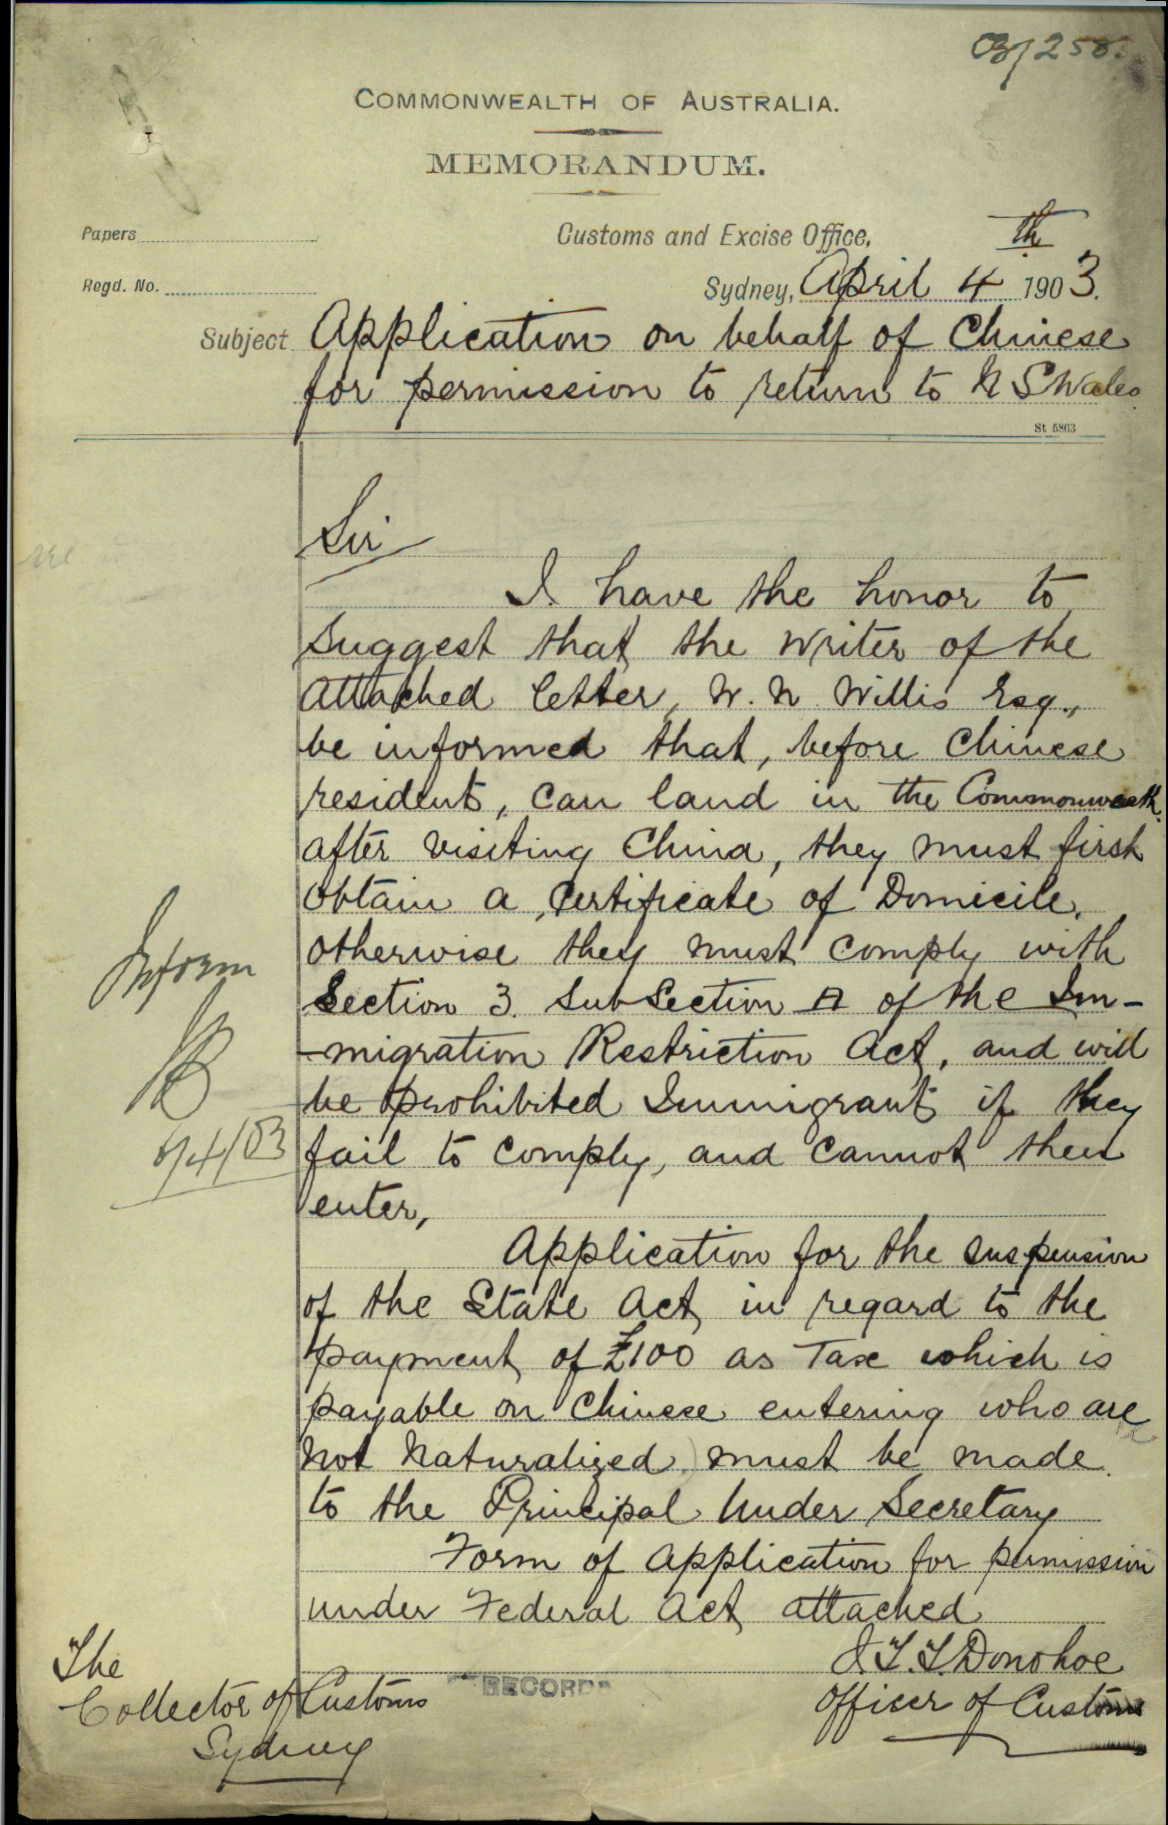 03/258.
COMMONWEALTH OF AUSTRALIA.
MEMORANDUM.
Papers
Customs and Excise Office,
Regd. No.
Sydney, April 4th 1903.
Subject Application on behalf of Chinese
for permission to return to N S Wales
St 5863
Sir
I have the honor to
suggest that the writer of the
attached letter, W. N Willis Esq.,
be informed that, before Chinese
residents, can land in the Commonwealth
after visiting China, they must first
obtain a Certificate of Domicile,
otherwise they must comply with
Section 3. Sub Section A of the Im-
-migration Restriction Act, and will
be prohibited Immigrants if they
fail to comply, and cannot then
enter,
Application for the suspension
of the State Act, in regard to the
payment of £100 as Tax which is
payable on Chinese entering who are
not Naturalized) must be made
to the Principal Under Secretary
Form of application for permission
under Federal Act attached
J. T. T. Donohoe
Officer of Customs
Inform
6/4/03
The
Collector of Customs
Sydney
RECORDS